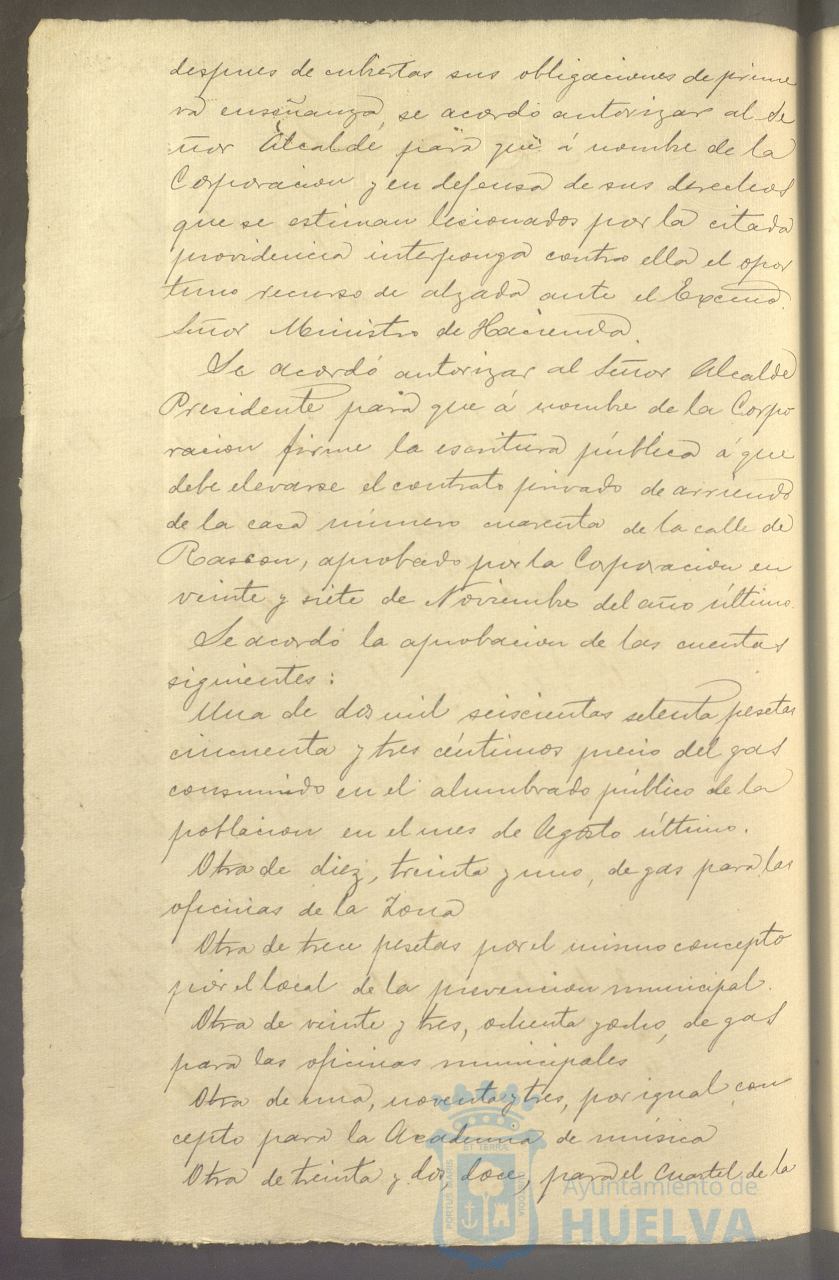 despues de cubiertas sus obligaciones de prime
ra enseñanza, se acordó autorizar al Se
ñor Alcalde para que á nombre de la
Corporacion y en defensa de sus derechos
que se estiman lesionados por la citada
providencia interponga contra ella el opor
tuno recurso de alzada ante el Excmo.
Señor Ministro de Hacienda.
Se acordó autorizar al Señor Alcalde
Presidente para que á nombre de la Corpo
racion firme la escritura pública á que
debe elevarse el contrato privado de arriendo
de la casa número cuarenta de la calle de
Rascon, aprobado por la Corporacion en
veinte y siete de Noviembre del año último.
Se acordó la aprobacion de las cuentas
siguientes:
Una de dos mil seiscientas setenta pesetas
cincuenta y tres céntimos precio del gas
consumido en el alumbrado público de la
poblacion en el mes de Agosto último.
Otra de diez, treinta y uno, de gas para las
oficinas de la Zona
Otra de trece pesetas por el mismo concepto
por el local de la prevencion municipal.
Otra de veinte y tres, ochenta y ocho, de gas
para las oficinas municipales
Otra de una, noventa y tres, por igual con
cepto para la Academia de música
Otra de treinta y dos, doce, para el Cuartel de la
PORTUS MARIS ET TERRAE CUSTODIA
Ayuntamiento de
HUELVA